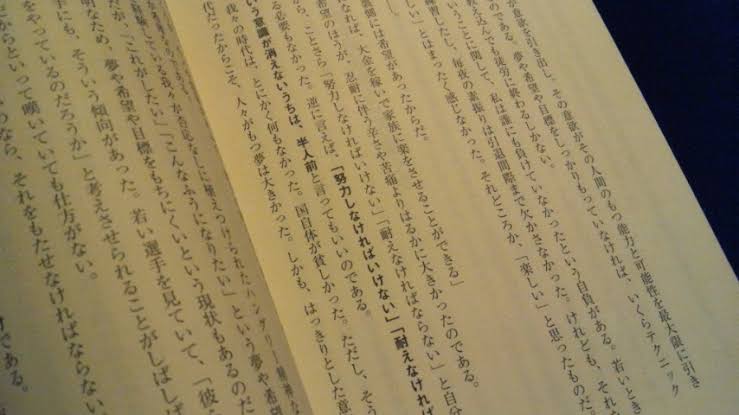 が意欲を引き出し、その意欲がその人間のもつ能力と可能性を最大限に引き
のである。夢や希望や目標をしっかりもっていなければ、いくらテクニック
教え込んでも徒労に終わるしかない。
いうことに関して、私は誰にも負けていなかったという自負がある。若いとき
練習したし、毎夜の素振りは引退間際まで欠かさなかった。けれども、それ
しい」とはまったく感じなかった。それどころか、「楽しい」と思ったものだ
裏側には希望があったからだ。
なれば、大金を稼いで家族に楽をさせることができる」
希望のほうが、忍耐に伴う辛さや苦痛よりはるかに大きかったのである。
から、ことさら「努力しなければいけない」「耐えなければならない」と自分
る必要もなかった。逆に言えば、「努力しなければいけない」「耐えなければ
いう意識が消えないうちは、半人前と言ってもいいのである。
我々の時代は、とにかく何もなかった。国自体が貧しかった。ただし、そう
代だったからこそ、人々がもつ夢は大きかった。しかも、はっきりとした意
我々が否応なしに植えつけられたハングリー精神な
だが、「これがしたい」「こんなふうになりたい」という夢や希望
明なため、夢や希望や目標をもちにくいという現状もあるのだ
手にも、そういう傾向があった。若い選手を見ていて、「彼
をやっているのだろうか」と考えさせられることがしばしば
からといって嘆いていても仕方がない。
いのなら、それをもたせなければならない
である。